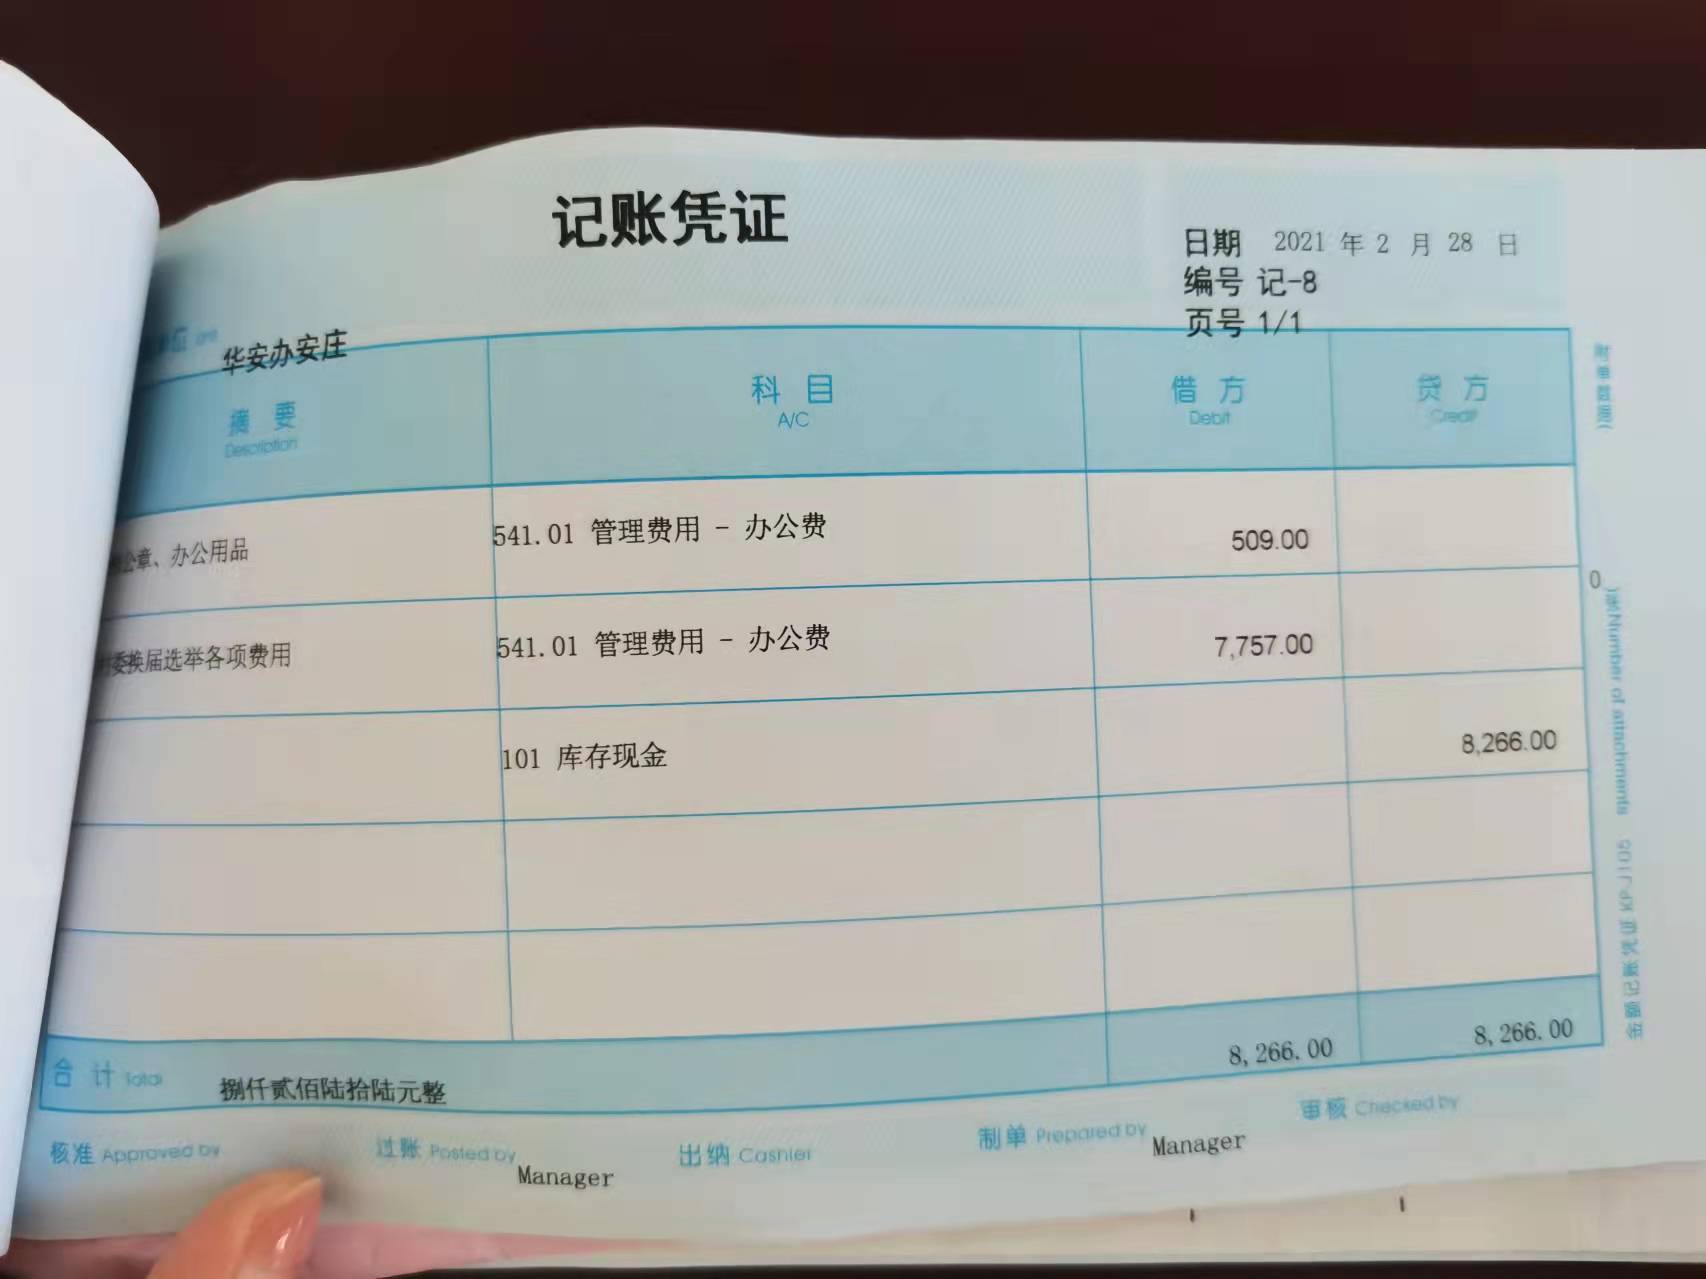 记账凭证
日期 2021 年 2 月 28 日
编号 记-8
页号 1/1
华安办安庄
摘要 科目 借方 贷方
Description A/C Debit Credit
公章、办公用品 541.01 管理费用 - 办公费 509.00
委换届选举各项费用 541.01 管理费用 - 办公费 7,757.00
101 库存现金 8,266.00
合计 Total 捌仟贰佰陆拾陆元整 8,266.00 8,266.00
核准 Approved by 过账 Posted by Manager 出纳 Cashier 制单 Prepared by Manager 审核 Checked by
0
Number of attachments
金额记账凭证 KPJ105